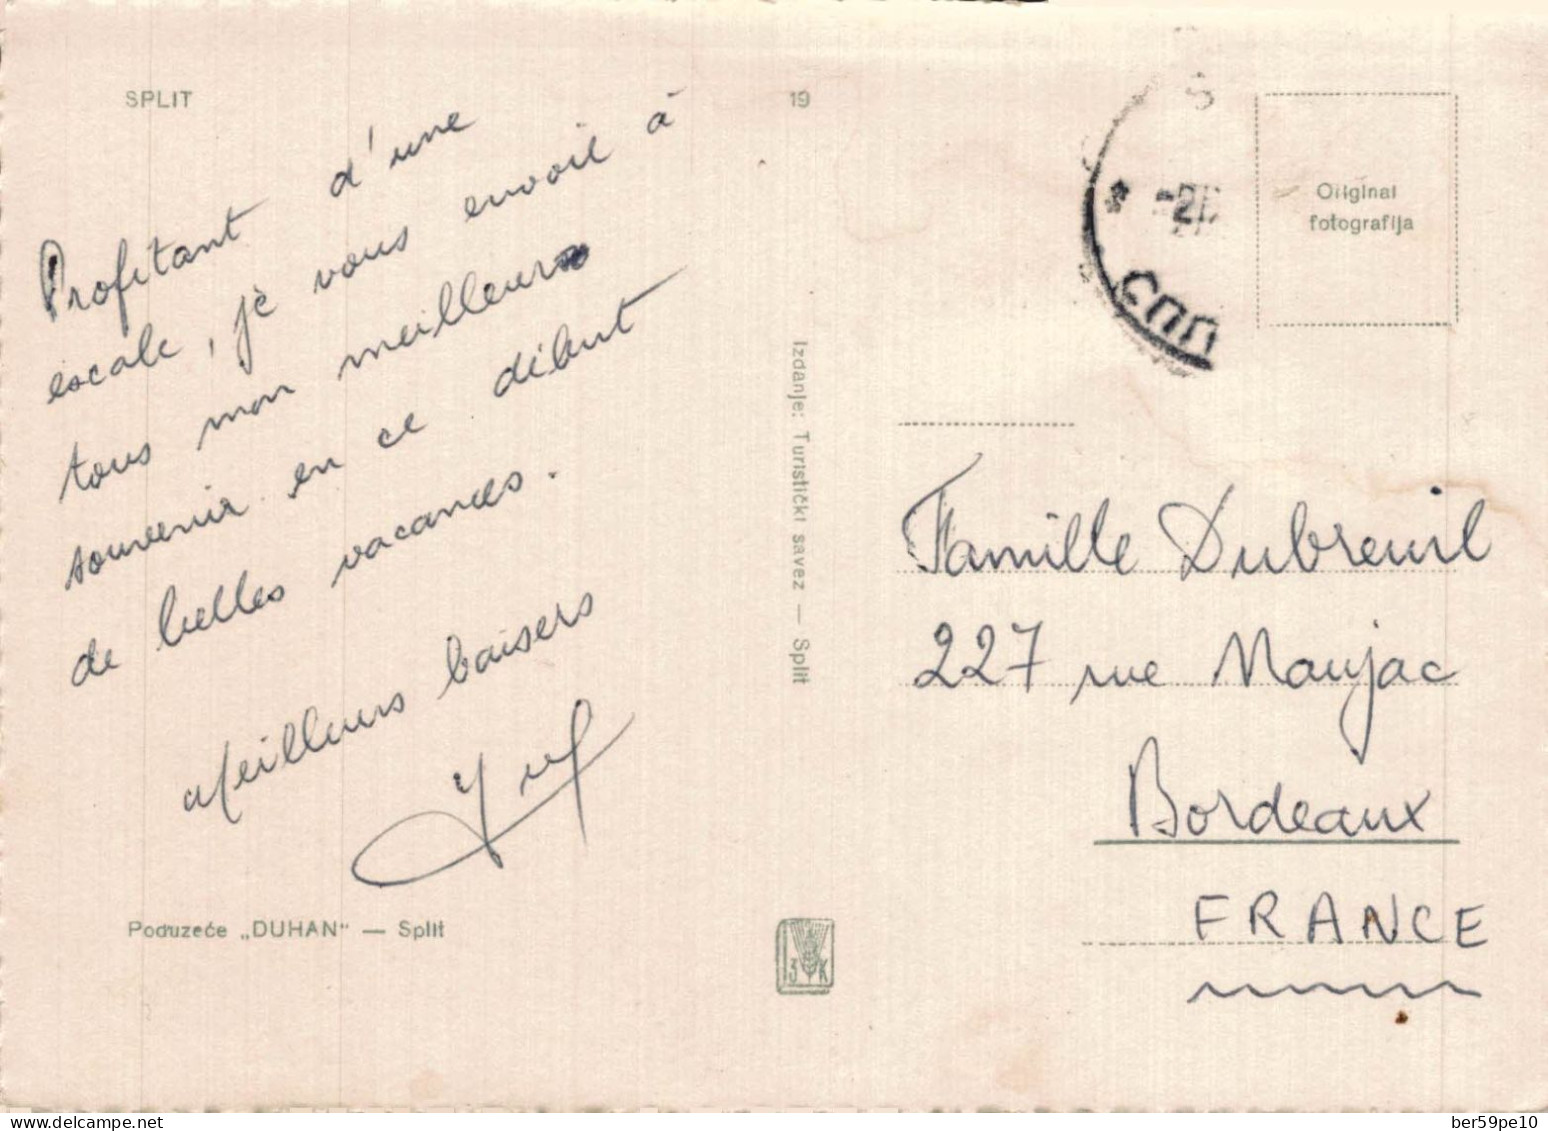 SPLIT
Profitant d'une
escale, je vous envoie à
tous mon meilleurs
souvenir en ce début
de belles vacances.
Meilleurs baisers
Poduzeće „DUHAN" — Split
19
Izdanje: Turistički savez — Split
Original
fotografija
Famille Dubreuil
227 rue Naujac
Bordeaux
FRANCE
Delcampe.net
ber59pe10